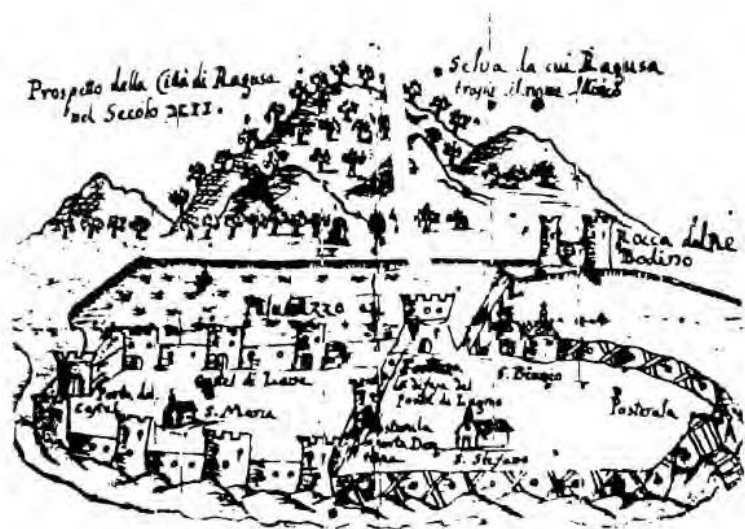 Prospetto della Città di Ragusa
nel Secolo XII.
Selva la cui Ragusa
trasse il nome Slavico
Rocca del Re
Bodino
Castel di Lave
Porta del
Castel
S. Maria
Fortezza
di difesa del
Ponte di Legno
S. Biagio
Postierla
S. Stefano